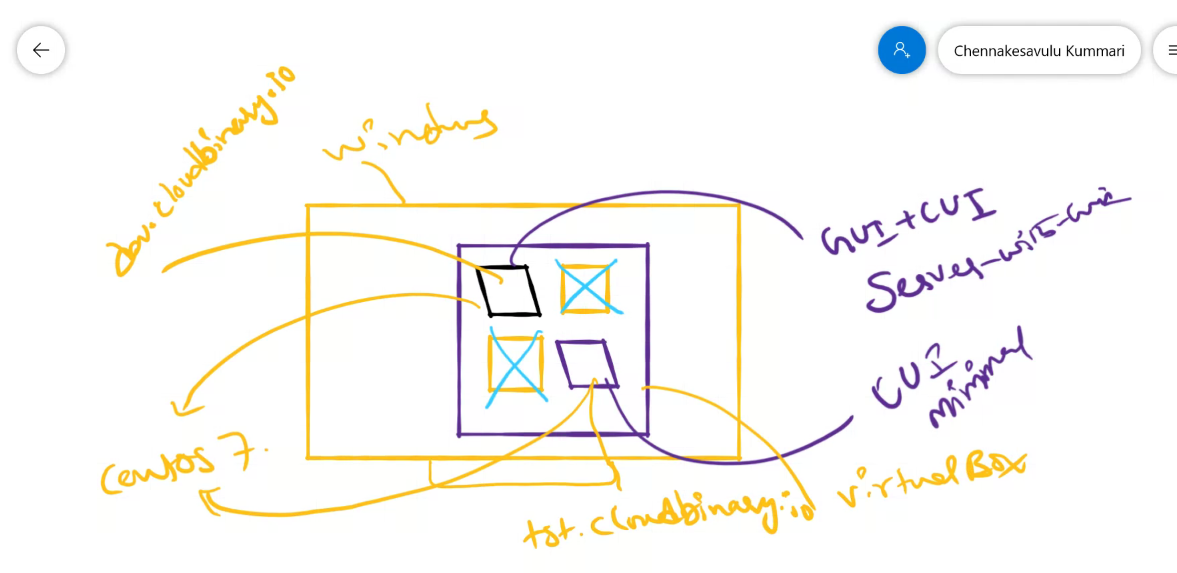 Chennakesavulu Kummari
dev.cloudbinary.io
windows
GUI+CUI
Server-with-GUI
CUI
minimal
Centos 7.
tst.cloudbinary.io
virtualBox